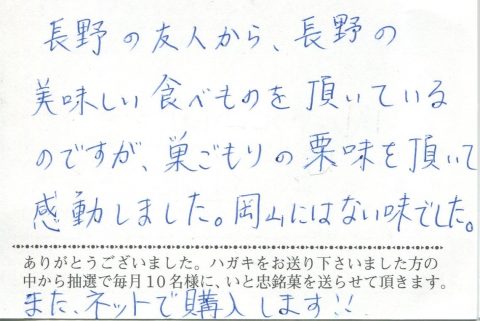 長野の友人から、長野の
美味しい食べものを頂いている
のですが、巣ごもりの栗味を頂いて
感動しました。岡山にはない味でした。
ありがとうございました。ハガキをお送り下さいました方の
中から抽選で毎月10名様に、いと忠銘菓を送らせて頂きます。
また、ネットで購入します!!